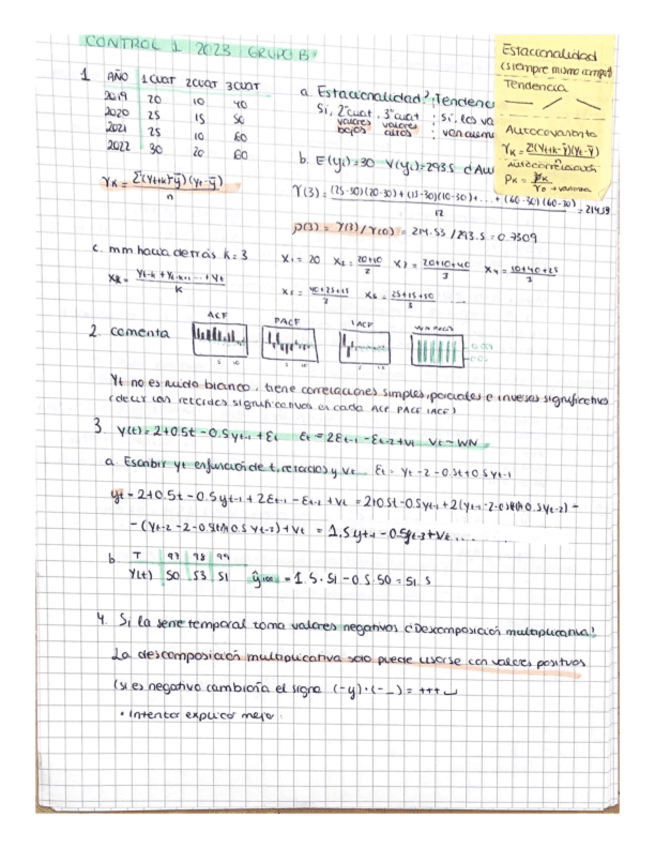 CONTROL 1 2023 GRUPO B
Estacionalidad
(siempre mismo compor)
Tendencia
Autocovarianza
γk = Σ(Yt+k-ȳ)(Yt-ȳ)
Autocorrelación
ρk = γk / γ0 → varianza
1 AÑO 1CUAT 2CUAT 3CUAT
2019 20 10 40
2020 25 15 50
2021 25 10 60
2022 30 20 60
γk = Σ(Yt+k-ȳ)(Yt-ȳ) / n
a. Estacionalidad? ¿Tendenc
Si, 2ºcuat, 3ºcuat : si, los va
valores valores
bajos altos : van aume
b. E(yt)=30 V(yt)=293.5 ¿Au
γ(3) = (25-30)(20-30) + (15-30)(10-30) + ... + (60-30)(60-30) / 12
ρ(3) = γ(3)/γ(0) = 214.53 / 293.5 = 0.7309
c. mm hacia detrás k=3
X1 = 20 X2 = 20+10 / 2 X3 = 20+10+40 / 3 X4 = 10+40+25 / 3
X5 = 40+25+15 / 3 X6 = 25+15+50 / 3
2. comenta ACF PACF IACF
Yt no es ruido blanco, tiene correlaciones simples, parciales e inversas significativas
(decir los retardos significativos en cada ACF PACF IACF)
3. Y(t) = 2+0.5t - 0.5yt-1 + εt εt = 2εt-1 - εt-2 + vt vt ~ WN
a. Escribir yt en función de t, retardos y vt. εt = yt - 2 - 0.5t + 0.5yt-1
yt = 2+0.5t - 0.5yt-1 + 2εt-1 - εt-2 + vt = 2+0.5t - 0.5yt-1 + 2(yt-1 -2-0.5t+0.5yt-2) -
- (yt-2 - 2 - 0.5t+0.5yt-2) + vt = 1.5yt-1 - 0.5yt-3 + vt ...
b T 97 98 99
Y(t) 50 53 51 ŷ100 = 1.5·51 - 0.5·50 = 51.5
4. Si la serie temporal toma valores negativos ¿Descomposición multiplicativa?
La descomposición multiplicativa solo puede usarse con valores positivos
(si es negativo cambiaría el signo (-y)·(-_) = +++
• Intentar explicar mejor.